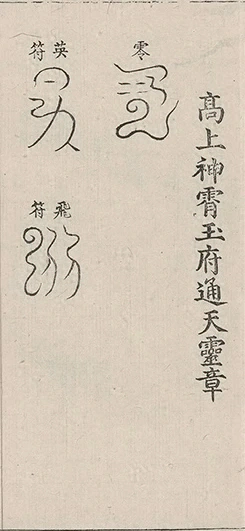 高上神霄玉府通天靈章
零
英符
飛符